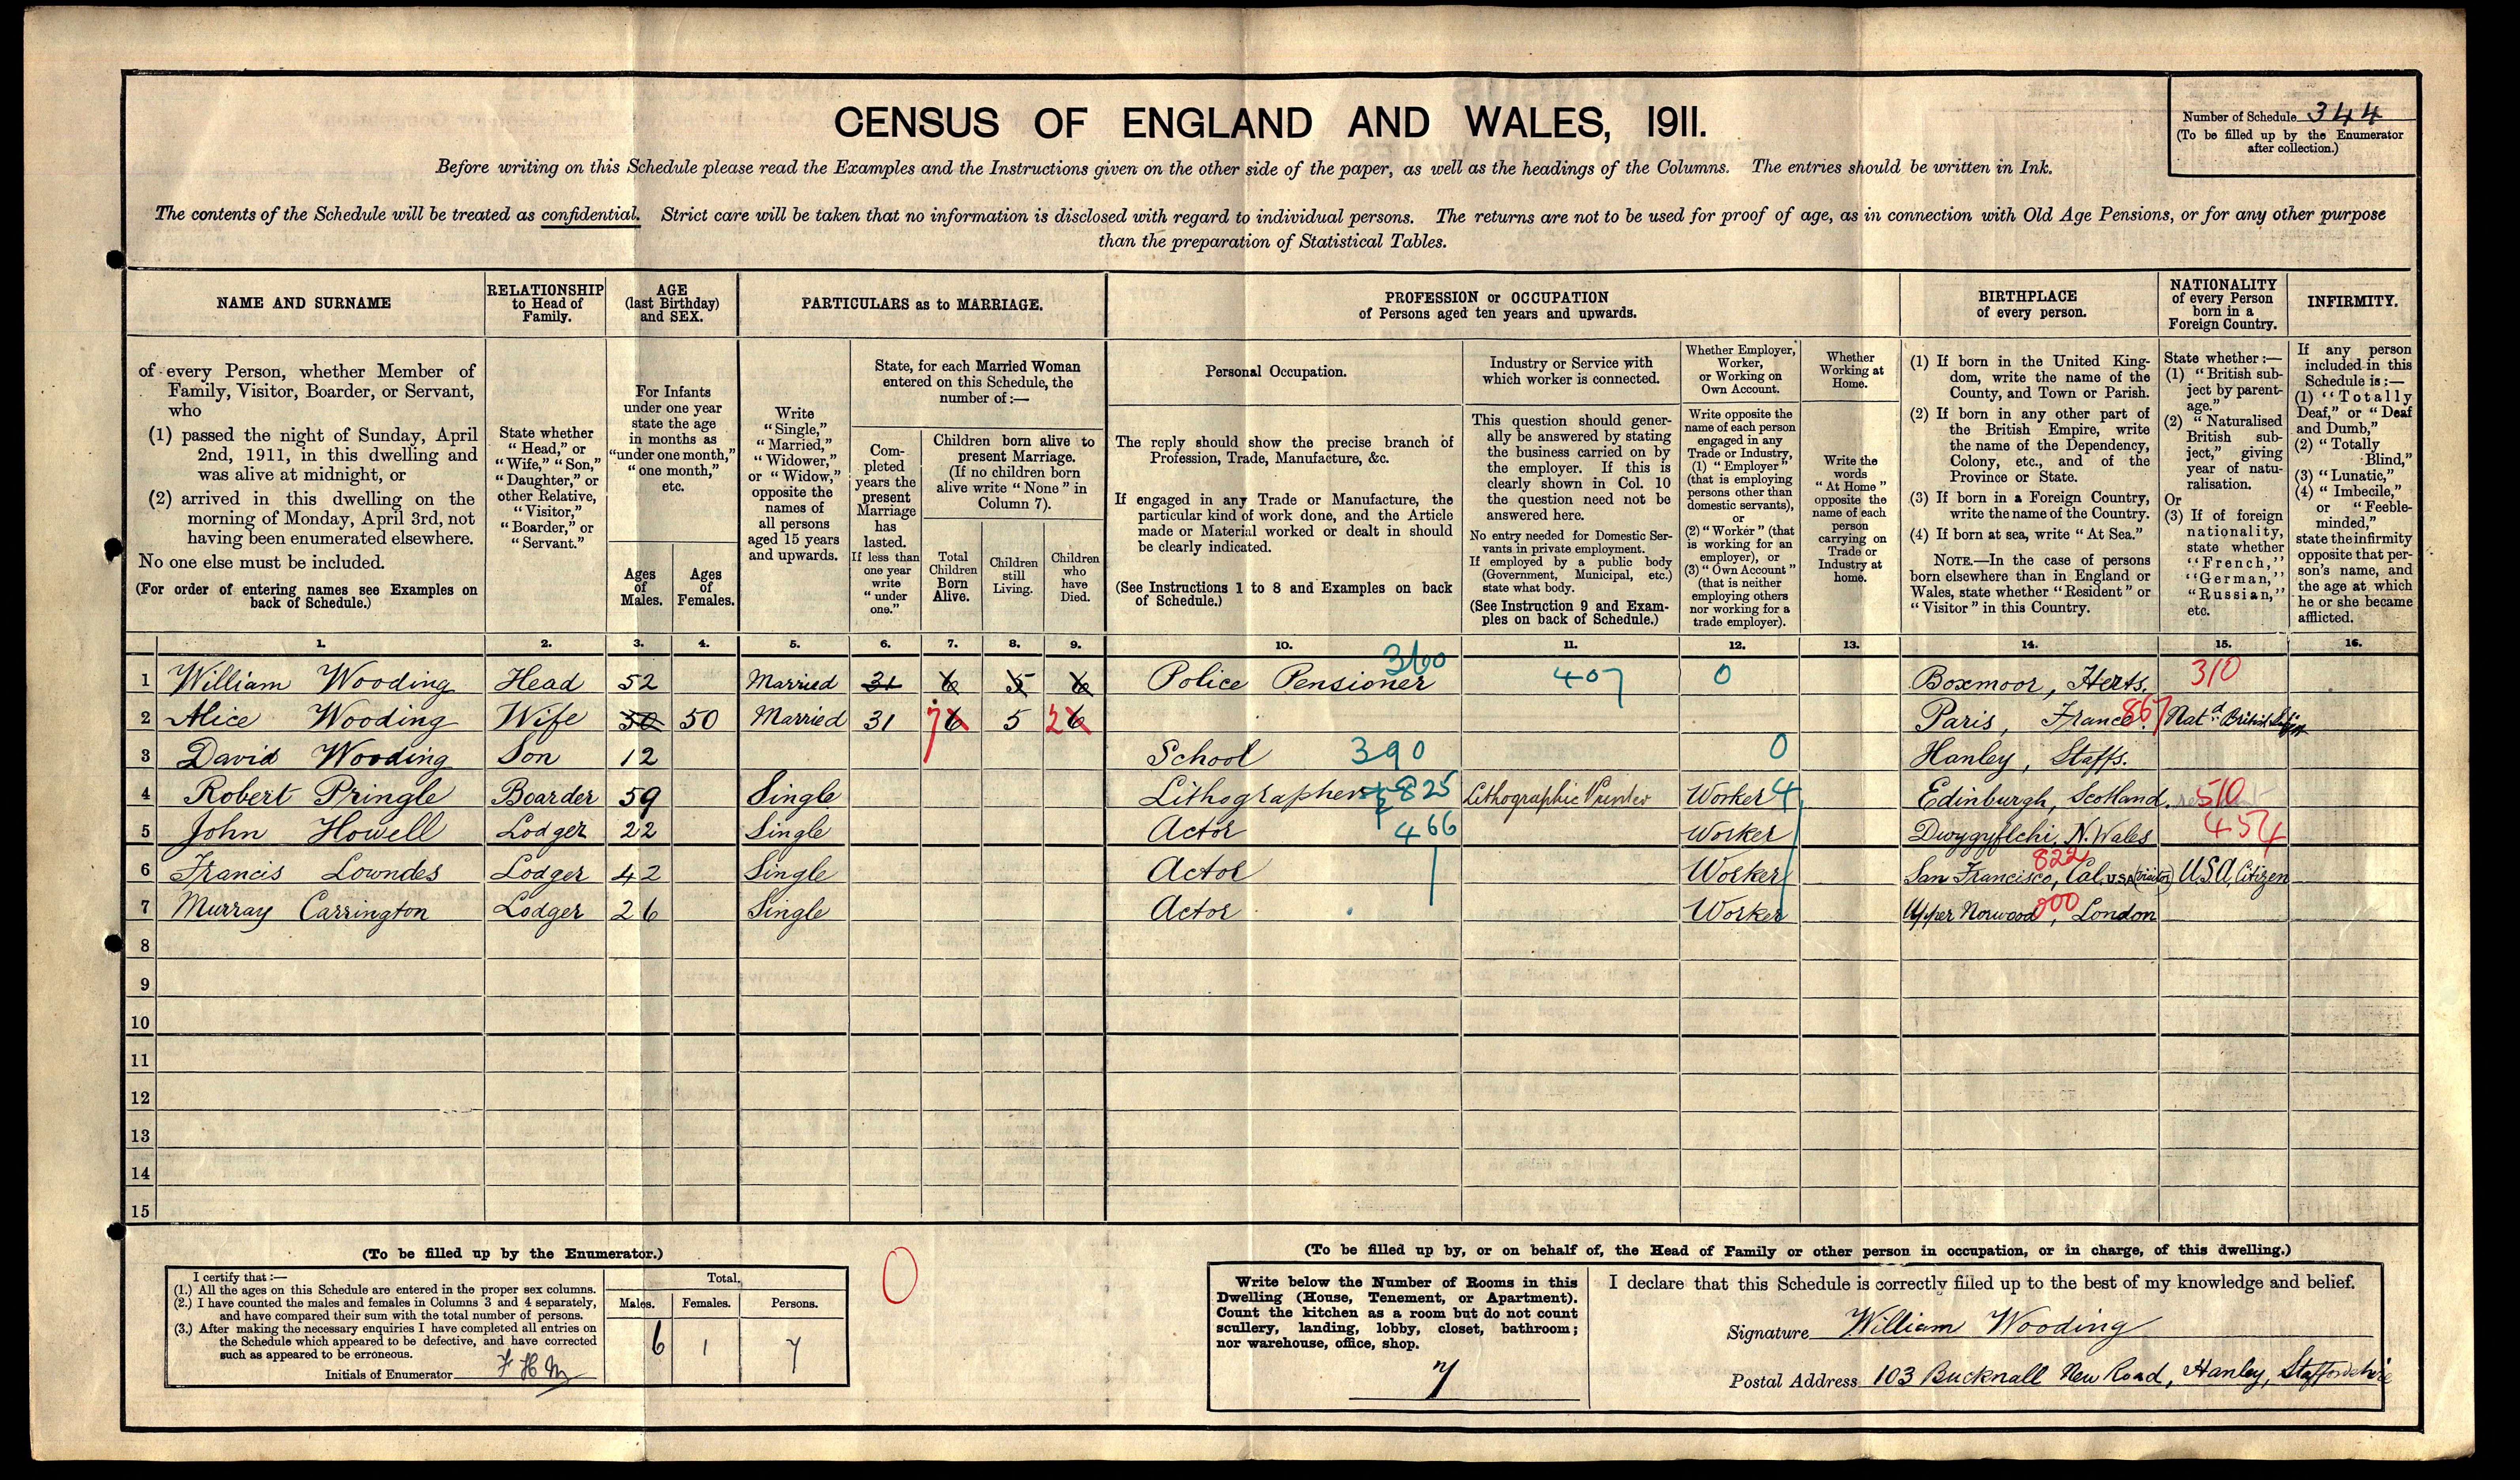 CENSUS OF ENGLAND AND WALES, 1911.
Number of Schedule 344
(To be filled up by the Enumerator
after collection.)
Before writing on this Schedule please read the Examples and the Instructions given on the other side of the paper, as well as the headings of the Columns. The entries should be written in Ink.
The contents of the Schedule will be treated as confidential. Strict care will be taken that no information is disclosed with regard to individual persons. The returns are not to be used for proof of age, as in connection with Old Age Pensions, or for any other purpose
than the preparation of Statistical Tables.
NAME AND SURNAME
RELATIONSHIP
to Head of
Family.
AGE
(last Birthday)
and SEX.
PARTICULARS as to MARRIAGE.
PROFESSION or OCCUPATION
of Persons aged ten years and upwards.
BIRTHPLACE
of every person.
NATIONALITY
of every Person
born in a
Foreign Country.
INFIRMITY.
of every Person, whether Member of
Family, Visitor, Boarder, or Servant,
who
(1) passed the night of Sunday, April
2nd, 1911, in this dwelling and
was alive at midnight, or
(2) arrived in this dwelling on the
morning of Monday, April 3rd, not
having been enumerated elsewhere.
No one else must be included.
(For order of entering names see Examples on
back of Schedule.)
State whether
"Head," or
"Wife," "Son,"
"Daughter," or
other Relative,
"Visitor,"
"Boarder," or
"Servant."
For Infants
under one year
state the age
in months as
"under one month,"
"one month,"
etc.
Ages
of
Males.
Ages
of
Females.
Write
"Single,"
"Married,"
"Widower,"
or "Widow,"
opposite the
names of
all persons
aged 15 years
and upwards.
State, for each Married Woman
entered on this Schedule, the
number of:—
Com-
pleted
years the
present
Marriage
has
lasted.
If less than
one year
write
"under
one."
Children born alive to
present Marriage.
(If no children born
alive write "None" in
Column 7).
Total
Children
Born
Alive.
Children
still
Living.
Children
who
have
Died.
Personal Occupation.
The reply should show the precise branch of
Profession, Trade, Manufacture, &c.
If engaged in any Trade or Manufacture, the
particular kind of work done, and the Article
made or Material worked or dealt in should
be clearly indicated.
(See Instructions 1 to 8 and Examples on back
of Schedule.)
Industry or Service with
which worker is connected.
This question should gener-
ally be answered by stating
the business carried on by
the employer. If this is
clearly shown in Col. 10
the question need not be
answered here.
No entry needed for Domestic Ser-
vants in private employment.
If employed by a public body
(Government, Municipal, etc.)
state what body.
(See Instruction 9 and Exam-
ples on back of Schedule.)
Whether Employer,
Worker,
or Working on
Own Account.
Write opposite the
name of each person
engaged in any
Trade or Industry,
(1) "Employer"
(that is employing
persons other than
domestic servants),
or
(2) "Worker" (that
is working for an
employer), or
(3) "Own Account"
(that is neither
employing others
nor working for a
trade employer).
Whether
Working at
Home.
Write the
words
"At Home"
opposite the
name of each
person
carrying on
Trade or
Industry at
home.
(1) If born in the United King-
dom, write the name of the
County, and Town or Parish.
(2) If born in any other part of
the British Empire, write
the name of the Dependency,
Colony, etc., and of the
Province or State.
(3) If born in a Foreign Country,
write the name of the Country.
(4) If born at sea, write "At Sea."
NOTE.—In the case of persons
born elsewhere than in England or
Wales, state whether "Resident" or
"Visitor" in this Country.
State whether:—
(1) "British sub-
ject by parent-
age."
(2) "Naturalised
British sub-
ject," giving
year of natu-
ralisation.
Or
(3) If of foreign
nationality,
state whether
"French,"
"German,"
"Russian,"
etc.
If any person
included in this
Schedule is:—
(1) "Totally
Deaf," or "Deaf
and Dumb,"
(2) "Totally
Blind,"
(3) "Lunatic,"
(4) "Imbecile,"
or "Feeble-
minded,"
state the infirmity
opposite that per-
son's name, and
the age at which
he or she became
afflicted.
1. 2. 3. 4. 5. 6. 7. 8. 9. 10. 11. 12. 13. 14. 15. 16.
1 William Wooding Head 52 Married 31 6 5 6 Police Pensioner 3100 407 0 Boxmoor, Herts. 310
2 Alice Wooding Wife 30 50 Married 31 7 6 5 2 6 Paris, France. 867 Natd. British
3 David Wooding Son 12 School 390 0 Hanley, Staffs.
4 Robert Pringle Boarder 59 Single Lithographer 825 Lithographic Printer Worker 4 Edinburgh, Scotland. 510
5 John Howell Lodger 22 Single Actor 466 Worker Dwygyflchi, N. Wales 454
6 Francis Lowndes Lodger 42 Single Actor Worker San Francisco, Cal. U.S.A (visitor) 822 U.S.A, Citizen
7 Murray Carrington Lodger 26 Single Actor Worker Upper Norwood, London 000
8
9
10
11
12
13
14
15
(To be filled up by the Enumerator.)
I certify that:—
(1.) All the ages on this Schedule are entered in the proper sex columns.
(2.) I have counted the males and females in Columns 3 and 4 separately,
and have compared their sum with the total number of persons.
(3.) After making the necessary enquiries I have completed all entries on
the Schedule which appeared to be defective, and have corrected
such as appeared to be erroneous.
Initials of Enumerator F H M
Total.
Males. Females. Persons.
6 1 7
0
(To be filled up by, or on behalf of, the Head of Family or other person in occupation, or in charge, of this dwelling.)
Write below the Number of Rooms in this
Dwelling (House, Tenement, or Apartment).
Count the kitchen as a room but do not count
scullery, landing, lobby, closet, bathroom;
nor warehouse, office, shop.
7
I declare that this Schedule is correctly filled up to the best of my knowledge and belief.
Signature William Wooding
Postal Address 103 Bucknall New Road, Hanley, Staffordshire